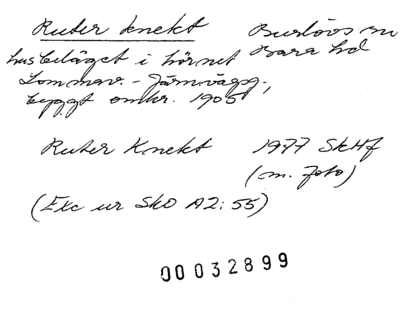 Ruter knekt Burlövs sn
hus beläget i hörnet Bara hd
Lommav.-Järnvägsg.,
byggt omkr. 1905
Ruter Knekt 1977 SkHf
(m. foto)
(Exc ur SkO A2:55)
00032899